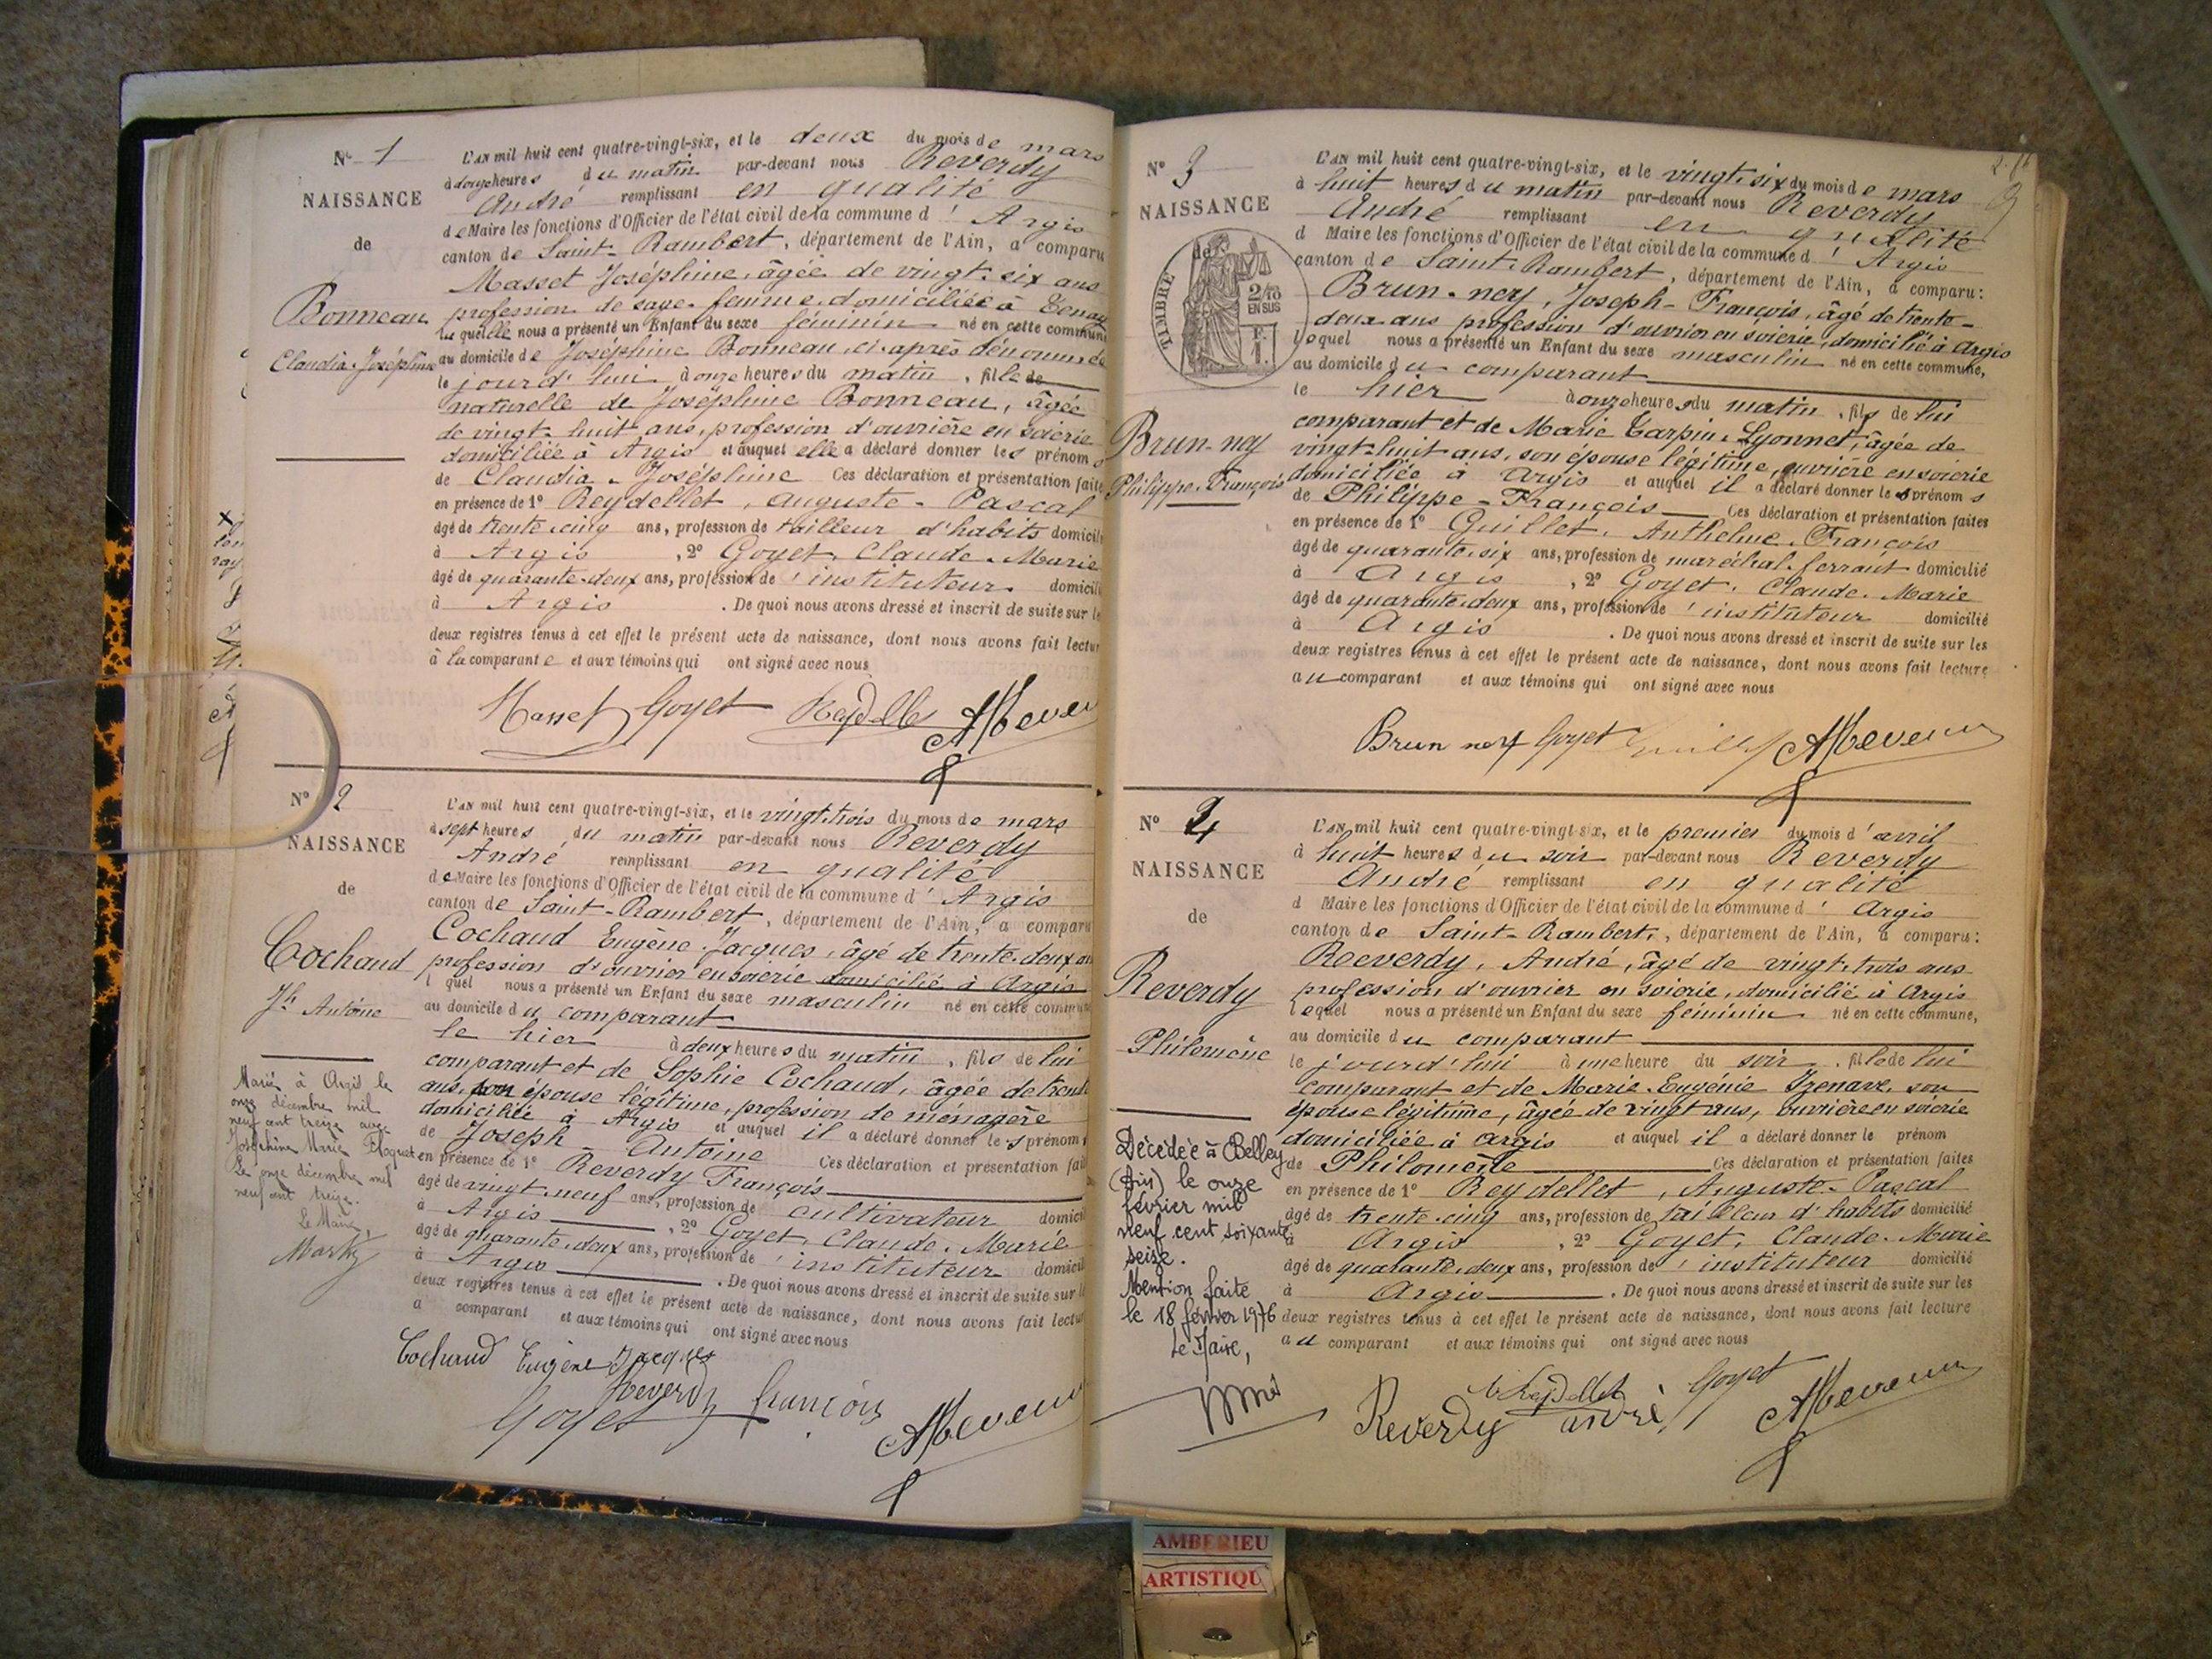 N° 1
NAISSANCE
de
Bonneau
Claudia-Joséphine
L'AN mil huit cent quatre-vingt-six, et le deux du mois de mars
à douze heures du matin par-devant nous Reverdy
André remplissant en qualité
de Maire les fonctions d'Officier de l'état civil de la commune d' Argis
canton de Saint-Rambert, département de l'Ain, a comparu
Masset Joséphine, âgée de vingt-six ans
profession de sage-femme, domiciliée à Tenay
la quelle nous a présenté un Enfant du sexe féminin né en cette commune
au domicile de Joséphine Bonneau, ci-après dénommée
le jourd'hui à onze heures du matin, fille de
naturelle de Joséphine Bonneau, âgée
de vingt-huit ans, profession d'ouvrière en soierie
domiciliée à Argis et auquel elle a déclaré donner les prénoms
de Claudia-Joséphine Ces déclaration et présentation faites
en présence de 1° Reydellet, Auguste-Pascal
âgé de trente-cinq ans, profession de tailleur d'habits domicilié
à Argis, 2° Goyet, Claude-Marie
âgé de quarante-deux ans, profession d'instituteur domicilié
à Argis. De quoi nous avons dressé et inscrit de suite sur le
deux registres tenus à cet effet le présent acte de naissance, dont nous avons fait lecture
à la comparante et aux témoins qui ont signé avec nous
Masset Goyet Reydellet
N° 2
NAISSANCE
de
Cochaud
Jh Antoine
Marié à Argis le
onze décembre mil
neuf cent treize avec
Joséphine Marie Floquet
Le onze décembre mil
neuf cent treize.
Le Maire,
L'AN mil huit cent quatre-vingt-six, et le vingt-trois du mois de mars
à sept heures du matin par-devant nous Reverdy
André remplissant en qualité
de Maire les fonctions d'Officier de l'état civil de la commune d' Argis
canton de Saint-Rambert, département de l'Ain, a comparu
Cochaud Eugène-Jacques, âgé de trente-deux ans
profession d'ouvrier en soierie domicilié à Argis
l quel nous a présenté un Enfant du sexe masculin né en cette commune
au domicile du comparant
le hier à deux heures du matin, fils de lui
comparant et de Sophie Cochaud, âgée de trente
ans, son épouse légitime, profession de ménagère
domiciliée à Argis et auquel il a déclaré donner les prénoms
de Joseph-Antoine Ces déclaration et présentation fai
en présence de 1° Reverdy François
âgé de vingt-neuf ans, profession de cultivateur domicil
à Argis, 2° Goyet, Claude-Marie
âgé de quarante-deux ans, profession d'instituteur domicil
à Argis. De quoi nous avons dressé et inscrit de suite sur l
deux registres tenus à cet effet le présent acte de naissance, dont nous avons fait lectur
a comparant et aux témoins qui ont signé avec nous
Cochaud Eugène Jacques
Reverdy françois
Goyet
N° 3
NAISSANCE
de
TIMBRE
2/10
EN SUS
Brun-ney
Philippe-François
L'AN mil huit cent quatre-vingt-six, et le vingt-six du mois de mars
à huit heures du matin par-devant nous Reverdy
André remplissant en qualité
d Maire les fonctions d'Officier de l'état civil de la commune d' Argis
canton de Saint-Rambert, département de l'Ain, a comparu:
Brun-ney, Joseph-François, âgé de trente-
deux ans profession d'ouvrier en soierie, domicilié à Argis
lequel nous a présenté un Enfant du sexe masculin né en cette commune,
au domicile du comparant
le hier à onze heures du matin, fils de lui
comparant et de Marie Carpin-Lyonnet, âgée de
vingt-huit ans, son épouse légitime, ouvrière en soierie
domiciliée à Argis et auquel il a déclaré donner les prénoms
de Philippe-François Ces déclaration et présentation faites
en présence de 1° Guillet, Anthelme-François
âgé de quarante-six ans, profession de maréchal-ferrant domicilié
à Argis, 2° Goyet, Claude-Marie
âgé de quarante-deux ans, profession d'instituteur domicilié
à Argis. De quoi nous avons dressé et inscrit de suite sur les
deux registres tenus à cet effet le présent acte de naissance, dont nous avons fait lecture
au comparant et aux témoins qui ont signé avec nous
Brun ney Goyet
N° 4
NAISSANCE
de
Reverdy
Philomène
Décédée à Belley
(Ain) le onze
février mil
neuf cent soixante
seize.
Mention faite
le 18 février 1976
Le Maire,
L'AN mil huit cent quatre-vingt-six, et le premier du mois d'avril
à huit heures du soir par-devant nous Reverdy
André remplissant en qualité
d Maire les fonctions d'Officier de l'état civil de la commune d' Argis
canton de Saint-Rambert, département de l'Ain, a comparu:
Reverdy, André, âgé de vingt-trois ans
profession d'ouvrier en soierie, domicilié à Argis
lequel nous a présenté un Enfant du sexe féminin né en cette commune,
au domicile du comparant
le jourd'hui à une heure du soir, fille de lui
comparant et de Marie-Eugénie Izenave, son
épouse légitime, âgée de vingt ans, ouvrière en soierie
domiciliée à Argis et auquel il a déclaré donner le prénom
de Philomène Ces déclaration et présentation faites
en présence de 1° Reydellet, Auguste-Pascal
âgé de trente-cinq ans, profession de tailleur d'habits domicilié
à Argis, 2° Goyet, Claude-Marie
âgé de quarante-deux ans, profession d'instituteur domicilié
à Argis. De quoi nous avons dressé et inscrit de suite sur les
deux registres tenus à cet effet le présent acte de naissance, dont nous avons fait lecture
au comparant et aux témoins qui ont signé avec nous
Reydellet Goyet
Reverdy andré
AMBERIEU
ARTISTIQU